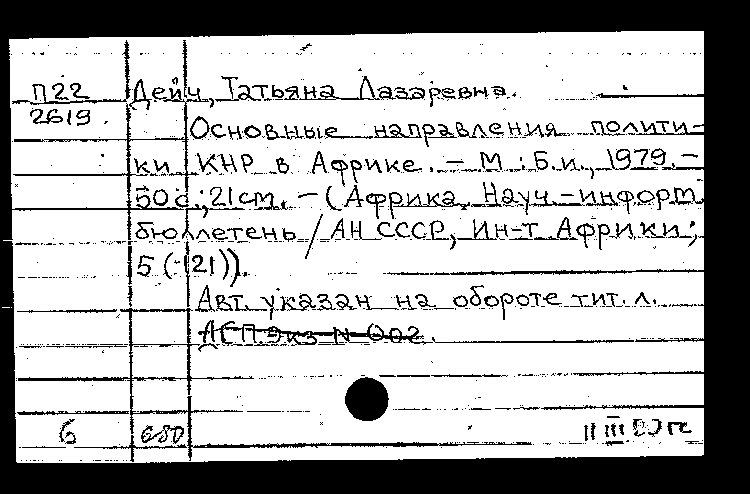 П22 Дейч, Татьяна Лазаревна.
2619.
Основные направления полити-
ки КНР в Африке. – М.: Б.и., 1979. –
50 с.; 21 см. – (Африка. Науч.-информ.
бюллетень / АН СССР, Ин-т Африки;
5 (121)).
Авт. указан на обороте тит. л.
АСП. Экз N 002.
6 680 11 III